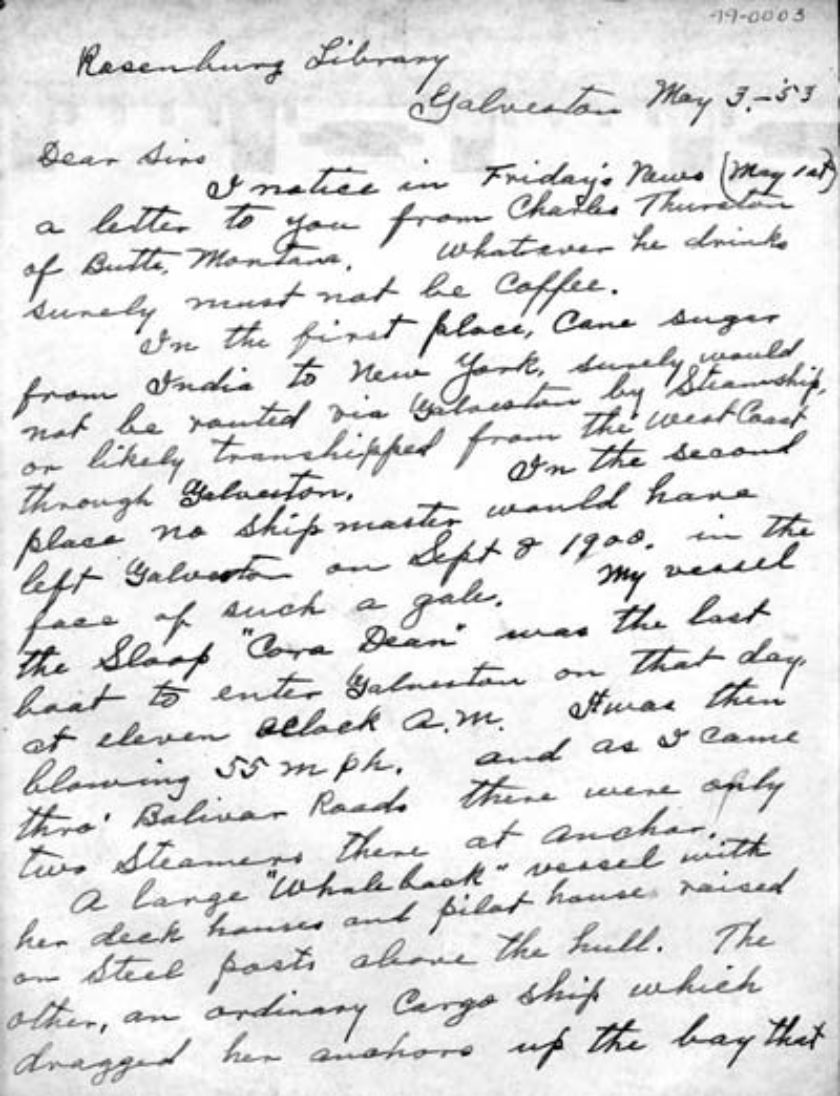 79-0003
Rosenburg Library
Galveston May 3,-'53
Dear Sirs
I notice in Friday's News (May 1st)
a letter to you from Charles Thurston
of Butte, Montana. Whatever he drinks
surely must not be Coffee.
In the first place, Cane sugar
from India to New York, surely would
not be routed via Galveston by Steamship,
or likely transhipped from the West Coast
through Galveston. In the second
place no ship master would have
left Galveston on Sept 8 1900. in the
face of such a gale. My vessel
the Sloop "Cora Dean" was the last
boat to enter Galveston on that day,
at eleven oclock A.M. It was then
blowing 55 m ph. and as I came
thro' Bolivar Roads there were only
two Steamers there at anchor.
A large "Whaleback" vessel with
her deck houses and pilot house raised
on Steel posts above the hull. The
other, an ordinary Cargo ship which
dragged her anchors up the bay that